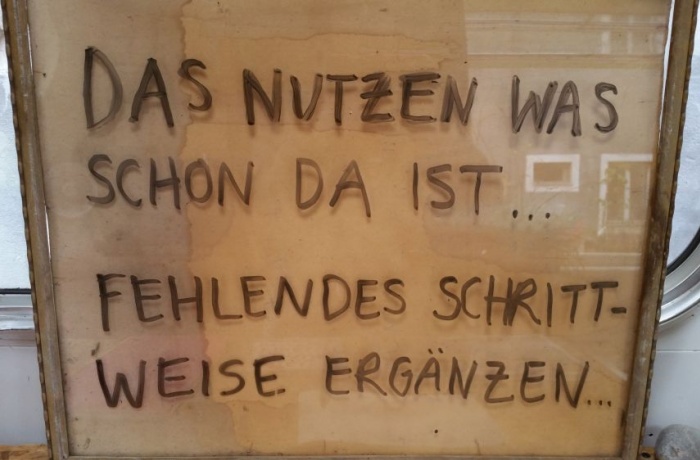 DAS NUTZEN WAS
SCHON DA IST...
FEHLENDES SCHRITT-
WEISE ERGÄNZEN...